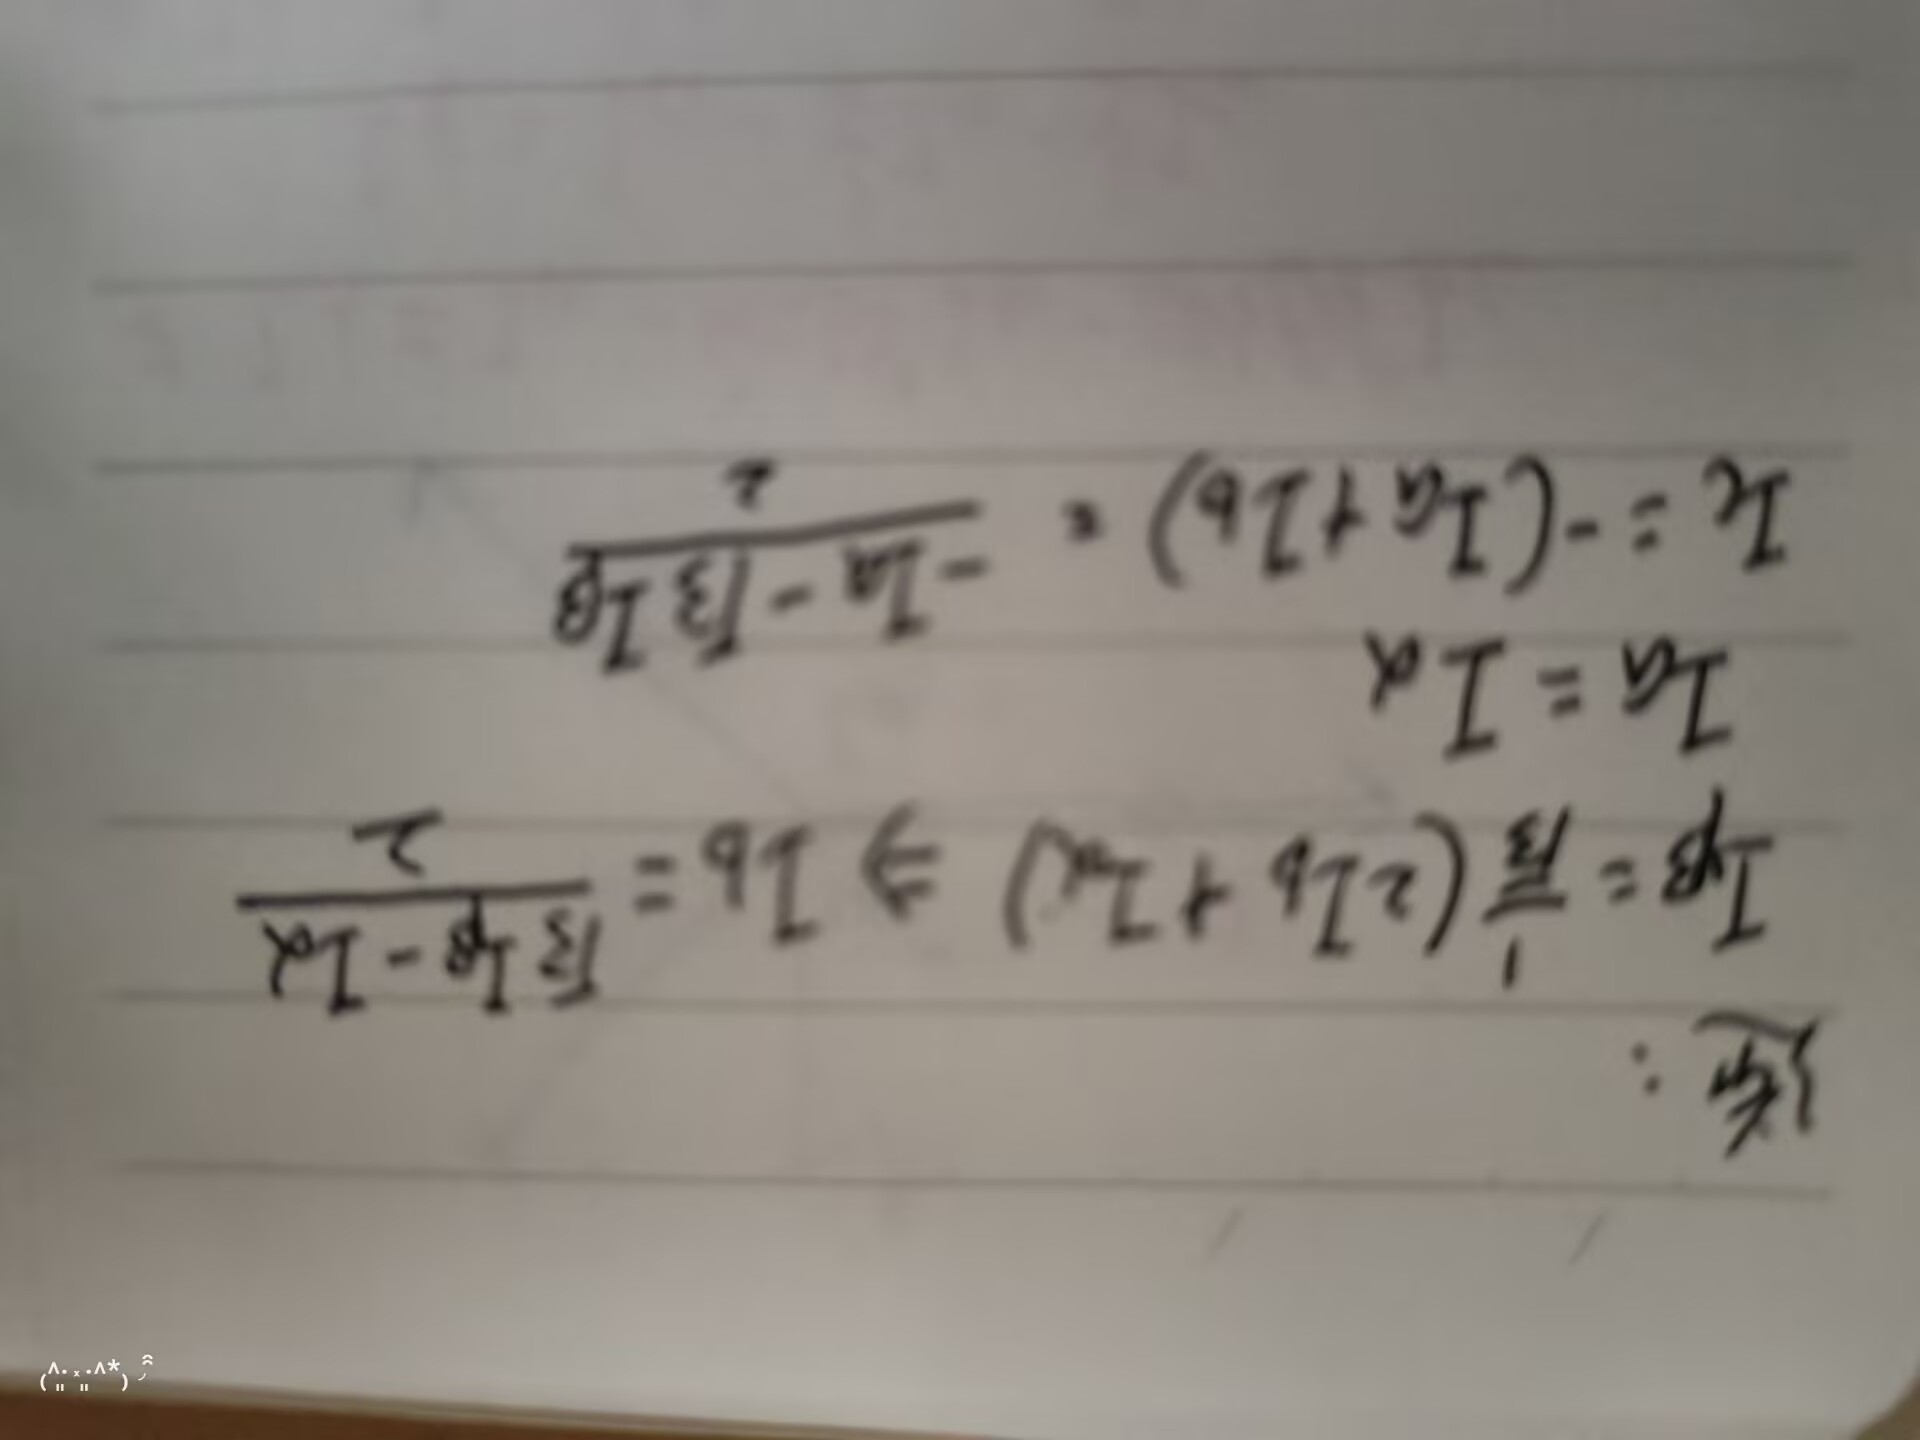 逆:
Iβ = 1/√3 (2Ib + Iα) ⇒ Ib = (√3Iβ - Iα)/2
Ia = Iα
Ic = -(Ia+Ib) = (-Iα - √3Iβ)/2
(^・ₓ・^*)